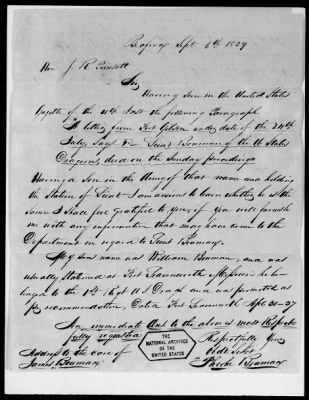 Sept 6th 1839
Hon J. R. Poinsett
Sir,
Having seen in the United States
Gazette of the Inst the following Paragraph
A letter from Fort Gibson under date of the 24th
July says Lieut Bowman of the U States
Dragoons, died on the Sunday preceding
Having a Son in the Army of that name and holding
the Station of Lieut I am anxious to learn whether he is the
same I shall feel grateful to you if you will furnish
me with any information that may have come to the
Department in regard to Lieut Bowman
My Sons name was William Bowman, and was
usually Stationed at Fort Leavenworth Missouri he be-
longed to the 1st of U S and was promoted as
recommendation, Fort Leavenworth Sept 30-37
An immediate to the above is most Respect-
fully requested
Respectfully Your
Obdt Servt
Phoebe Bowman
Address to the care of
James Bowman
THE
NATIONAL ARCHIVES
OF THE
UNITED STATES